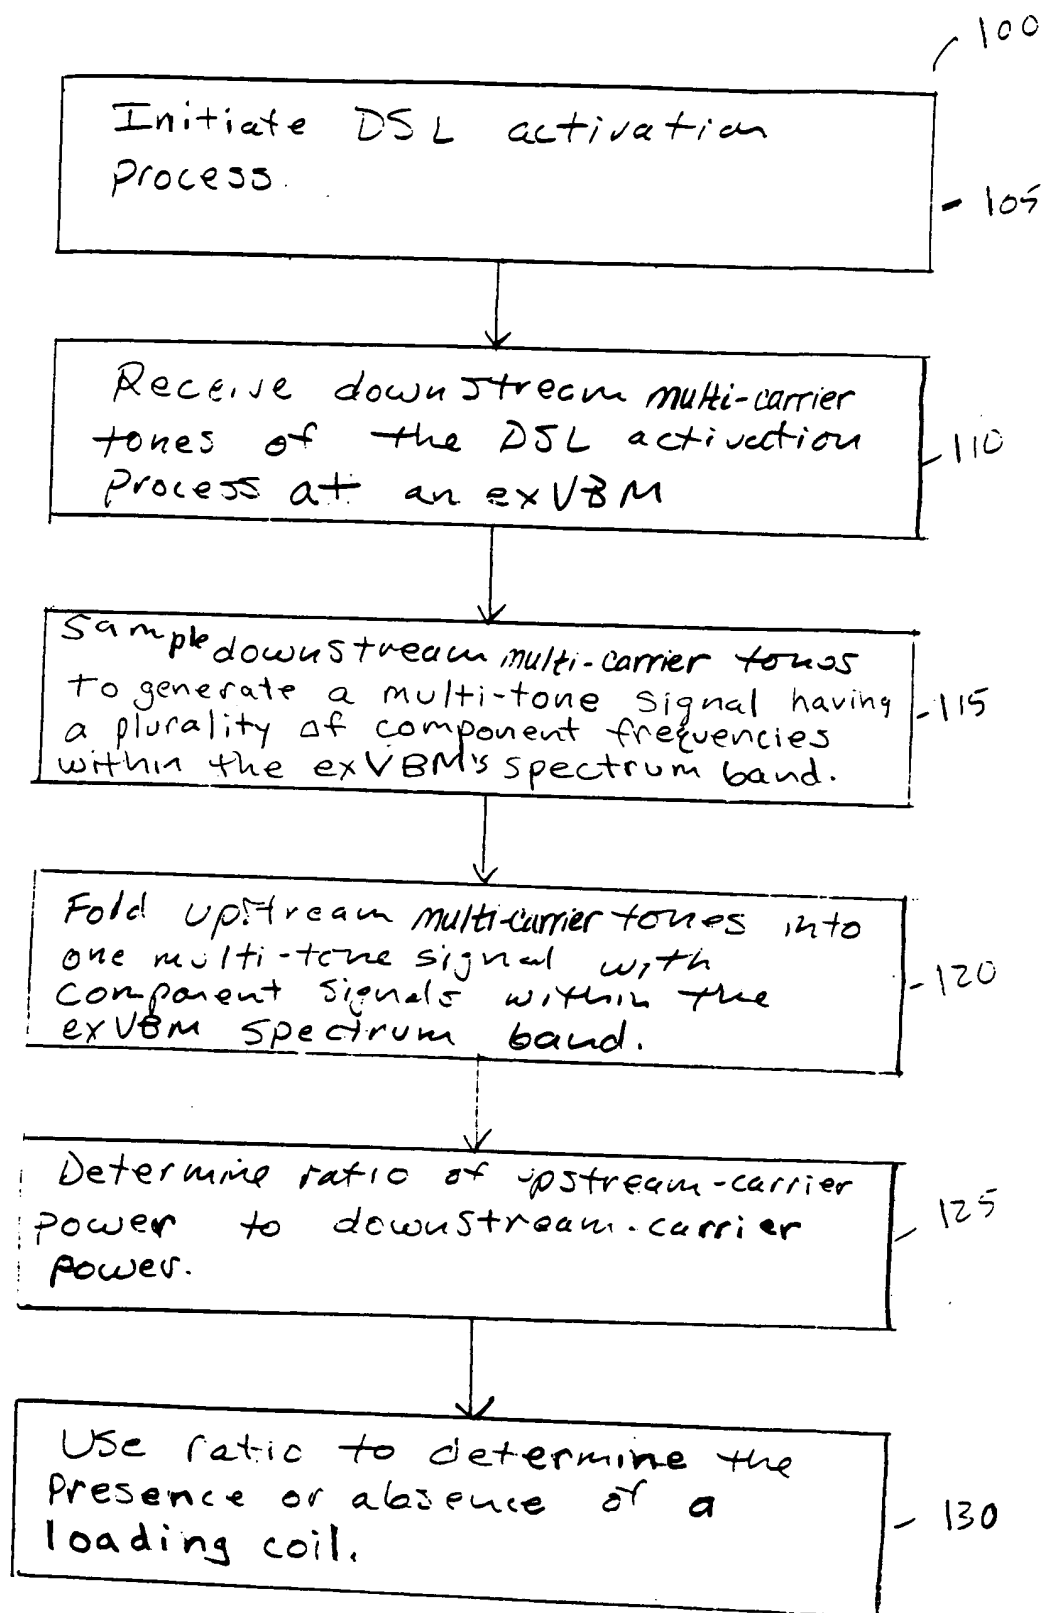 100
Initiate DSL activation
Process.
105
Receive downstream multi-carrier
tones of the DSL activation
Process at an exVBM
110
Sample downstream multi-carrier tones
to generate a multi-tone signal having
a plurality of component frequencies
within the exVBM's spectrum band.
115
Fold upstream multi-carrier tones into
one multi-tone signal with
component signals within the
exVBM spectrum band.
120
Determine ratio of upstream-carrier
power to downstream-carrier
power.
125
Use ratio to determine the
Presence or absence of a
loading coil.
130